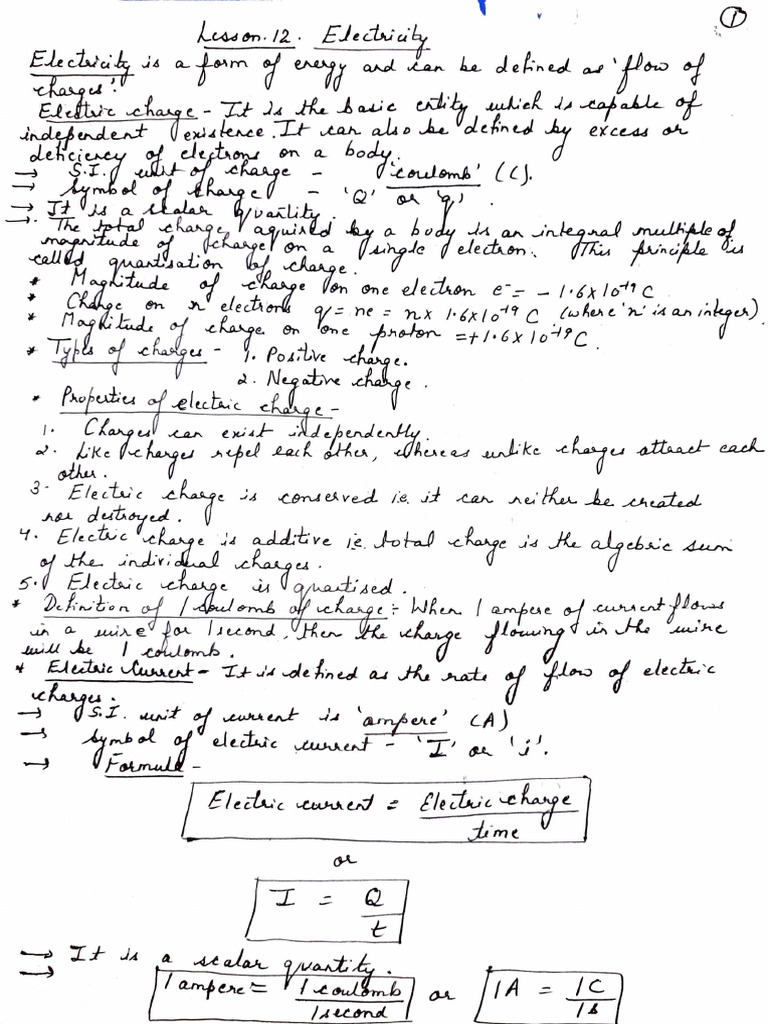 1
Lesson.12. Electricity
Electricity is a form of energy and can be defined as 'flow of
charges'.
Electric charge - It is the basic entity which is capable of
independent existence. It can also be defined by excess or
deficiency of electrons on a body.
→ S.I. unit of charge - 'coulomb' (C).
→ Symbol of charge - 'Q' or 'q'.
→ It is a scalar quantity.
→ The total charge aquired by a body is an integral multiple of
magnitude of charge on a single electron. This principle is
called quantisation of charge.
* Magnitude of charge on one electron e⁻ = - 1.6 x 10⁻¹⁹ C
* Charge on n electrons q = ne = n x 1.6 x 10⁻¹⁹ C (where 'n' is an integer).
* Magnitude of charge on one proton = + 1.6 x 10⁻¹⁹ C.
* Types of charges - 1. Positive charge.
2. Negative charge.
* Properties of electric charge -
1. Charges can exist independently.
2. Like charges repel each other, whereas unlike charges attract each
other.
3. Electric charge is conserved i.e. it can neither be created
nor destroyed.
4. Electric charge is additive i.e. total charge is the algebric sum
of the individual charges.
5. Electric charge is quantised.
* Definition of 1 coulomb of charge :- When 1 ampere of current flows
in a wire for 1 second, then the charge flowing in the wire
will be 1 coulomb.
* Electric Current - It is defined as the rate of flow of electric
charges.
→ S.I. unit of current is 'ampere' (A)
→ Symbol of electric current - 'I' or 'i'.
→ Formula -
Electric current = Electric charge
time
or
I = Q
t
→ It is a scalar quantity.
→ 1 ampere = 1 coulomb or 1A = 1C
1 second 1s